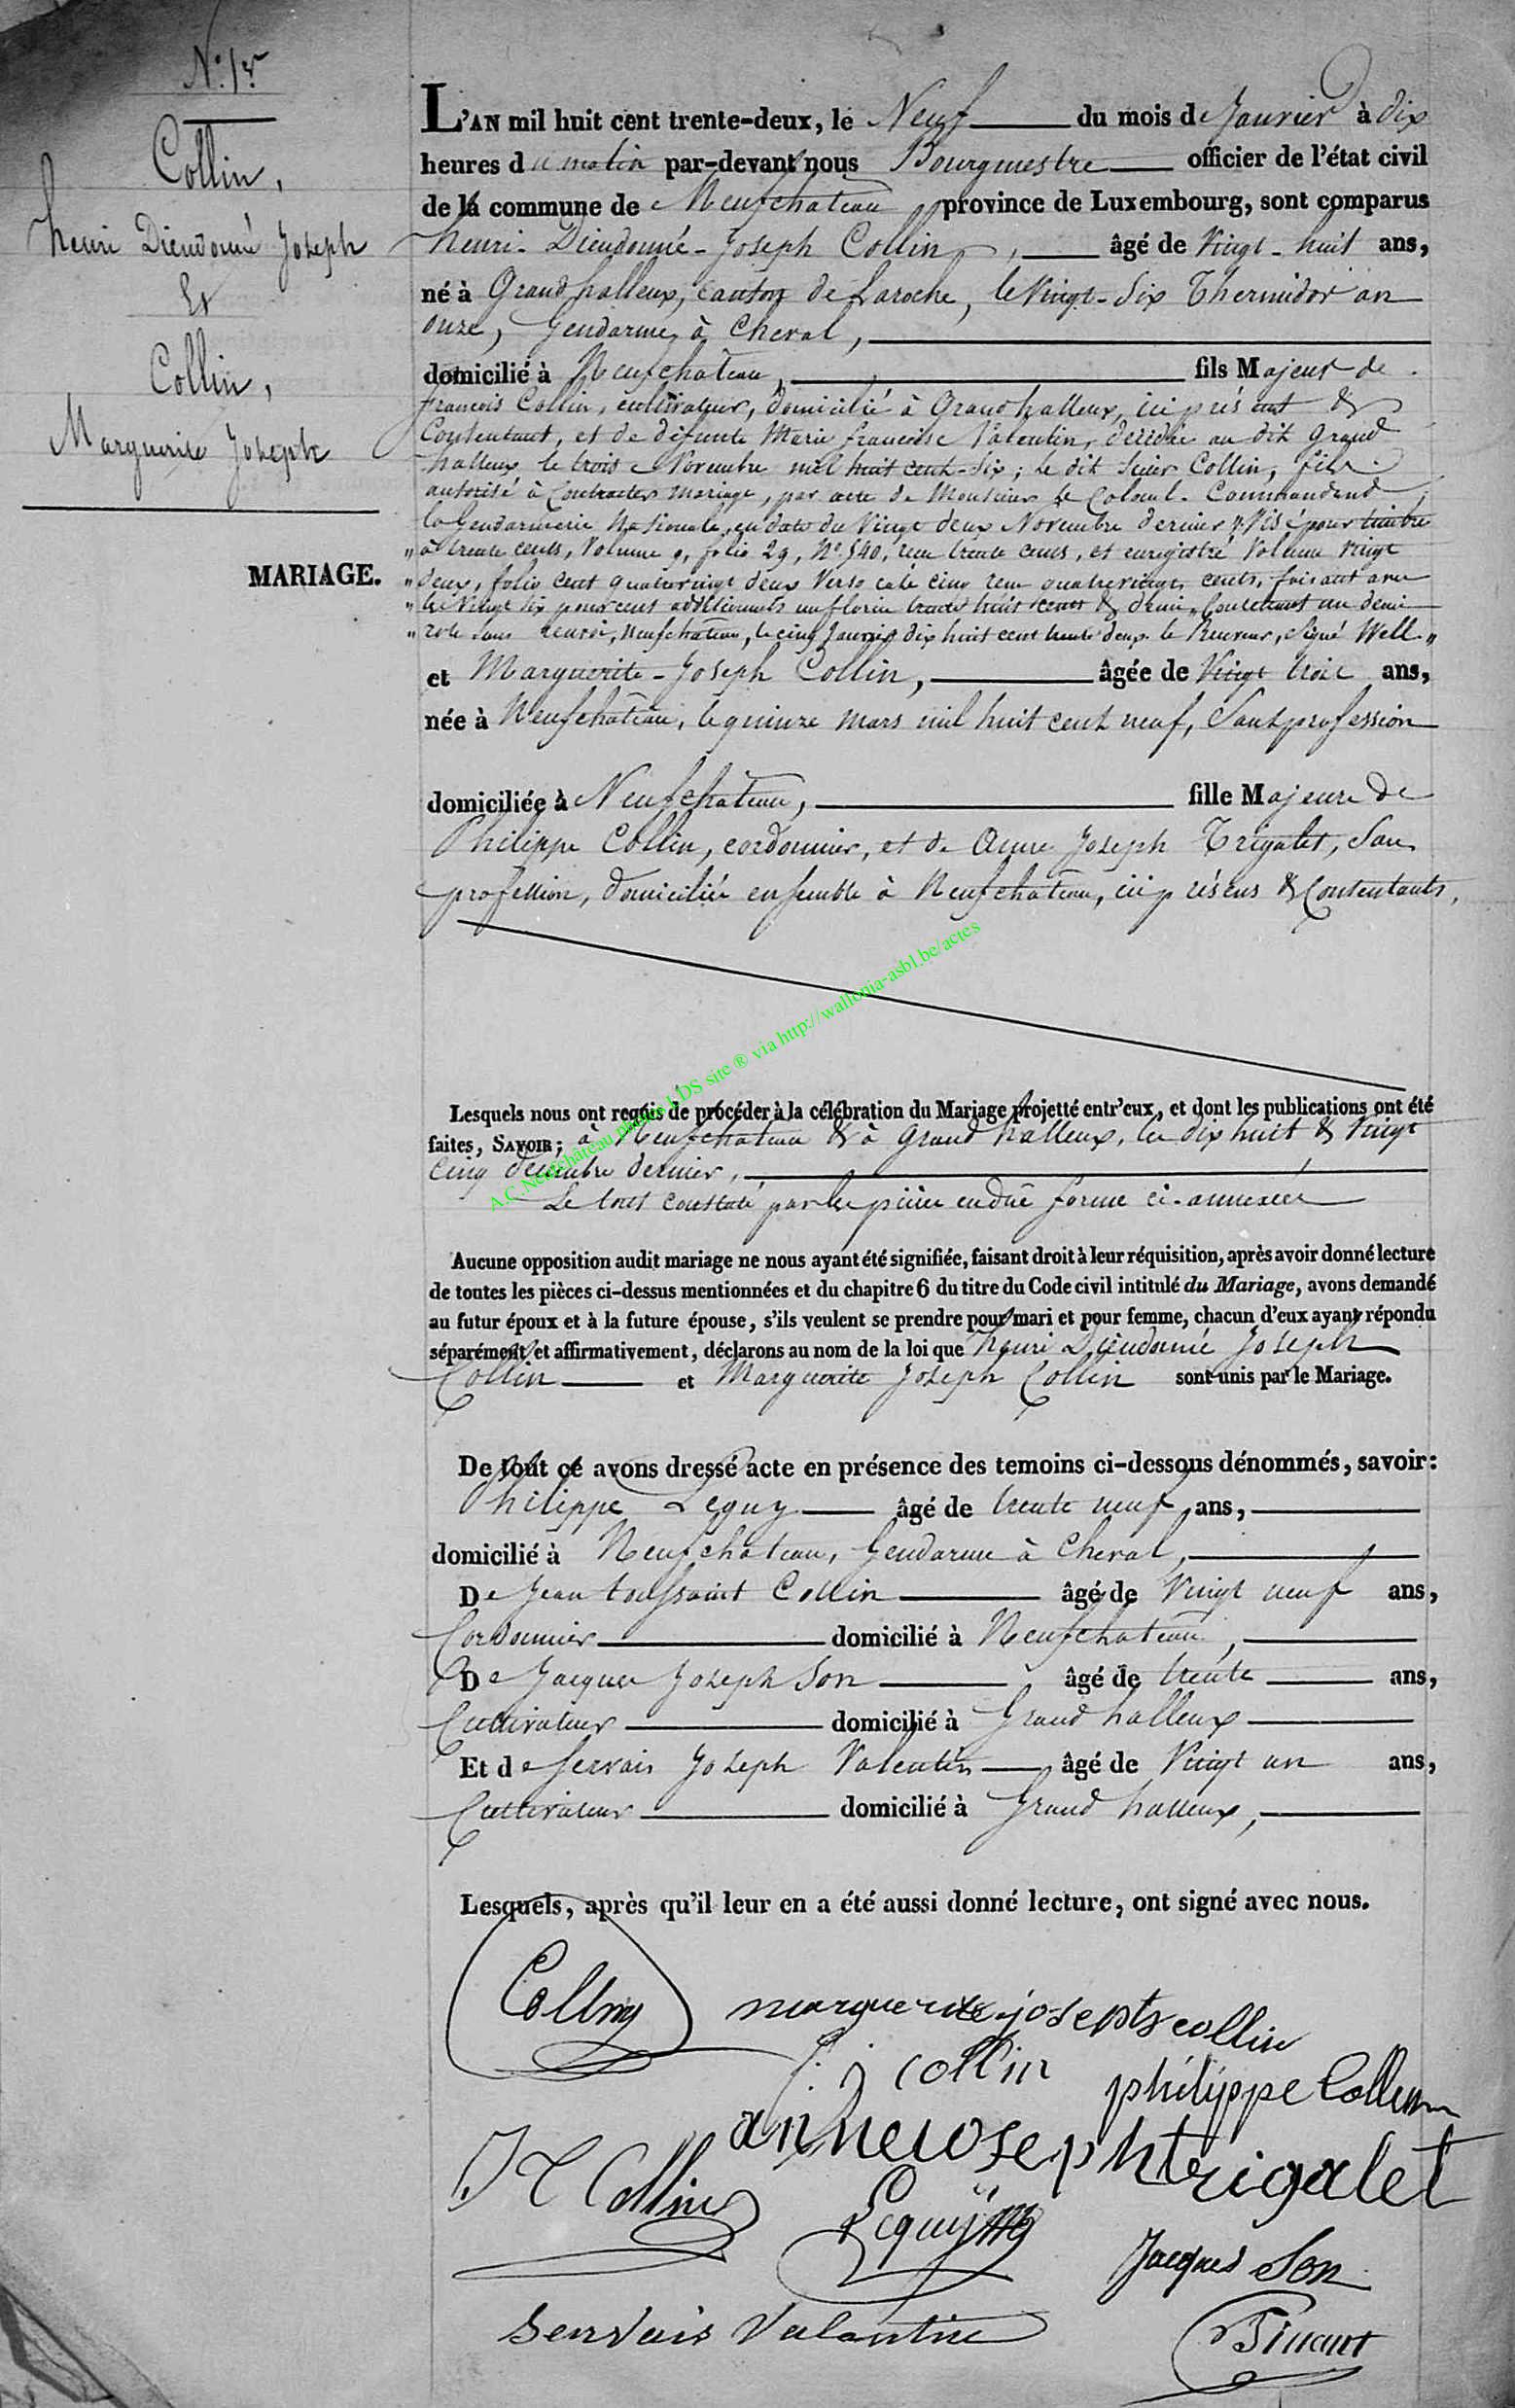 N.° 1er
Collin,
henri Dieudonné Joseph
Et
Collin,
Marguerite Joseph
MARIAGE.
L'AN mil huit cent trente-deux, le Neuf du mois de Janvier à dix
heures du matin par-devant nous Bourgmestre officier de l'état civil
de la commune de Neufchateau province de Luxembourg, sont comparus
henri-Dieudonné-Joseph Collin, âgé de Vingt-huit ans,
né à Grandhalleux, canton de Laroche, le Vingt-Six Thermidor an
onze, Gendarme à Cheval,
domicilié à Neufchateau, fils Majeur de
francois Collin, cultivateur, domicilié à Grandhalleux, ici présent &
Consentant, et de défunte Marie francoise Valentin, décédée au dit Grand
halleux le trois Novembre mil huit cent-Six; le dit Sieur Collin, fils
autorisé à Contracter mariage, par acte de Monsieur le Colonel-Commandant
la Gendarmerie Nationale, en date du Vingt deux Novembre dernier, "Visé pour timbre
" à trente cents, Volume 9, folio 29, N.° 540, reçu trente cents, et enregistré Volume Vingt
" deux, folio cent quatrevingt deux Verso case cinq reçu quatrevingt cents, faisant avec
" les Vingt six pour cent additionnels un florin trente huit cents & demi, Contenant un demi
" role sans renvoi, Neufchâteau, le cinq Janvier dix huit cent trente deux. le Receveur, Signé Well "
et Marguerite-Joseph Collin, âgée de Vingt trois ans,
née à Neufchâteau, le quinze mars mil huit cent neuf, Sans profession
domiciliée à Neufchâteau, fille Majeure de
Philippe Collin, cordonnier, et de Anne Joseph Trigalet, Sans
profession, domiciliés ensemble à Neufchâteau, ici présens & Consentants,
A.C. Neufchâteau photos LDS site ® via http://wallonia-asbl.be/actes
Lesquels nous ont requis de procéder à la célébration du Mariage projetté entr'eux, et dont les publications ont été
faites, SAVOIR; à Neufchateau & à Grand halleux, les dix huit & Vingt
Cinq decembre dernier,
Le tout constaté par les pièces en dûe forme ci-annexées
Aucune opposition audit mariage ne nous ayant été signifiée, faisant droit à leur réquisition, après avoir donné lecture
de toutes les pièces ci-dessus mentionnées et du chapitre 6 du titre du Code civil intitulé du Mariage, avons demandé
au futur époux et à la future épouse, s'ils veulent se prendre pour mari et pour femme, chacun d'eux ayant répondu
séparément et affirmativement, déclarons au nom de la loi que henri Dieudonné Joseph
Collin et Marguerite Joseph Collin sont unis par le Mariage.
De tout ce avons dressé acte en présence des temoins ci-dessous dénommés, savoir:
Philippe Lequy âgé de trente neuf ans,
domicilié à Neufchateau, Gendarme à Cheval,
De Jean toussaint Collin âgé de Vingt neuf ans,
Cordonnier domicilié à Neufchateau,
De Jacques Joseph Son âgé de trente ans,
Cultivateur domicilié à Grand halleux
Et de Servais Joseph Valentin âgé de Vingt un ans,
Cultivateur domicilié à Grand halleux,
Lesquels, après qu'il leur en a été aussi donné lecture, ont signé avec nous.
Collin
marguerite joseph collin
f. j collin
philippe Collin
anne ioseph trigalet
J T Collin
Lequy
Jacques Son
Servais Valantin